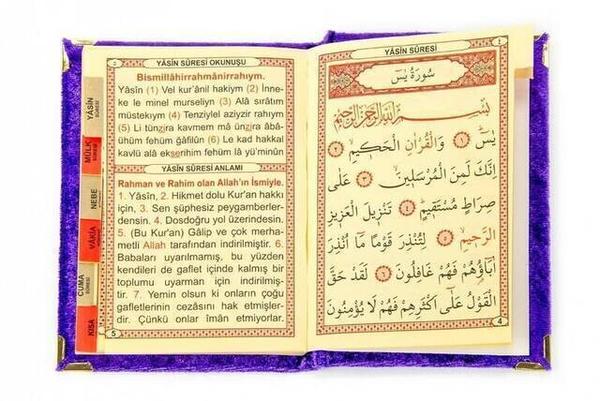 ٥
YÂSİN SÛRESİ OKUNUŞU
Bismillâhirrahmânirrahıym.
Yâsîn (1) Vel kur'ânil hakiym (2) İnne-
ke le minel murseliyn (3) Alâ sırâtım
müstekıym (4) Tenziylel aziyzir rahıym
(5) Li tünzira kavmem mâ ünzira âbâ-
ühüm fehüm ğâfilûn (6) Le kad hakkal
kavlü alâ ekserihim fehüm lâ yü'minûn
YÂSİN SÛRESİ ANLAMI
Rahman ve Rahim olan Allah'ın İsmiyle.
1. Yâsîn, 2. Hikmet dolu Kur'an hakkı
için, 3. Sen şüphesiz peygamberler-
densin. 4. Dosdoğru yol üzerindesin.
5. (Bu Kur'an) Gâlip ve çok merha-
metli Allah tarafından indirilmiştir. 6.
Babaları uyarılmamış, bu yüzden
kendileri de gaflet içinde kalmış bir
toplumu uyarman için indirilmiş-
tir. 7. Yemin olsun ki onların çoğu
gafletlerinin cezasını hak etmişler-
dir. Çünkü onlar iman etmiyorlar.
5
YÂSİN
SÛRESİ
MÜLK
SÛRESİ
NEBE
SÛRESİ
VÂKIA
SÛRESİ
CUMA
SÛRESİ
KISA
٤
YÂSİN SÛRESİ
سُورَةُ يٰسٓ
بِسْمِ اللّٰهِ الرَّحْمٰنِ الرَّحِيمِ
يٰسٓ ﴿١﴾ وَالْقُرْاٰنِ الْحَكِيمِ ﴿٢﴾
اِنَّكَ لَمِنَ الْمُرْسَلِينَ ﴿٣﴾ عَلٰى
صِرَاطٍ مُسْتَقِيمٍ ﴿٤﴾ تَنْزِيلَ الْعَزِيزِ
الرَّحِيمِ ﴿٥﴾ لِتُنْذِرَ قَوْمًا مَٓا اُنْذِرَ
اٰبَٓاؤُ۬هُمْ فَهُمْ غَافِلُونَ ﴿٦﴾ لَقَدْ حَقَّ
الْقَوْلُ عَلٰٓى اَكْثَرِهِمْ فَهُمْ لَا يُؤْمِنُونَ
4